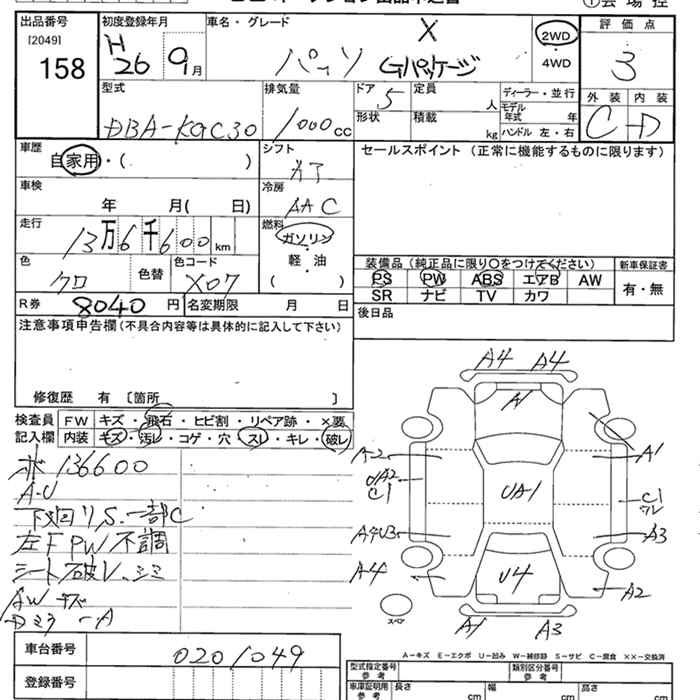 出品番号 初度登録年月 車名・グレード X 2WD 評価点
[2049] H 26 9月 パッソ Gパッケージ 4WD 3
158
型式 排気量 ドア 5 定員 人 ディーラー・並行 外装 内装
DBA-KGC30 1000cc 形状 積載 kg モデル年式 年 C D
ハンドル 左・右
車歴 シフト セールスポイント (正常に機能するものに限ります)
自家用・( )
車検 冷房
年 月( 日) AAC
走行 燃料
13万6千600km ガソリン
軽・油
色 色替 色コード ( ) 装備品 (純正品に限り〇をつけてください) 新車保証書
クロ X07 PS PW ABS エアB AW 有・無
SR ナビ TV カワ
R券 8040円 名変期限 月 日 後日品
注意事項申告欄 (不具合内容等は具体的に記入して下さい)
修復歴 有 〔箇所 〕
検査員 FW キズ・飛石・ヒビ割・リペア跡・×要
記入欄 内装 キズ・汚レ・コゲ・穴・スレ・キレ・破レ
136600
A-U
下廻リS.一部C
左F PW不調
シート破レ.シミ
AWキズ
Dミラ-A
A4 A4
A1
A-2 A1
UA2 UA1 C1
C1
A4U3 A3
A4 U4 A2
スペア
A1 A3
A-キズ E-エクボ U-凹み W-補修跡 S-サビ C-腐食 XX-交換済
車台番号 0201049
登録番号
型式指定番号 参考 類別区分番号 参考
車庫証明用 参考 長さ cm 幅 cm 高さ cm